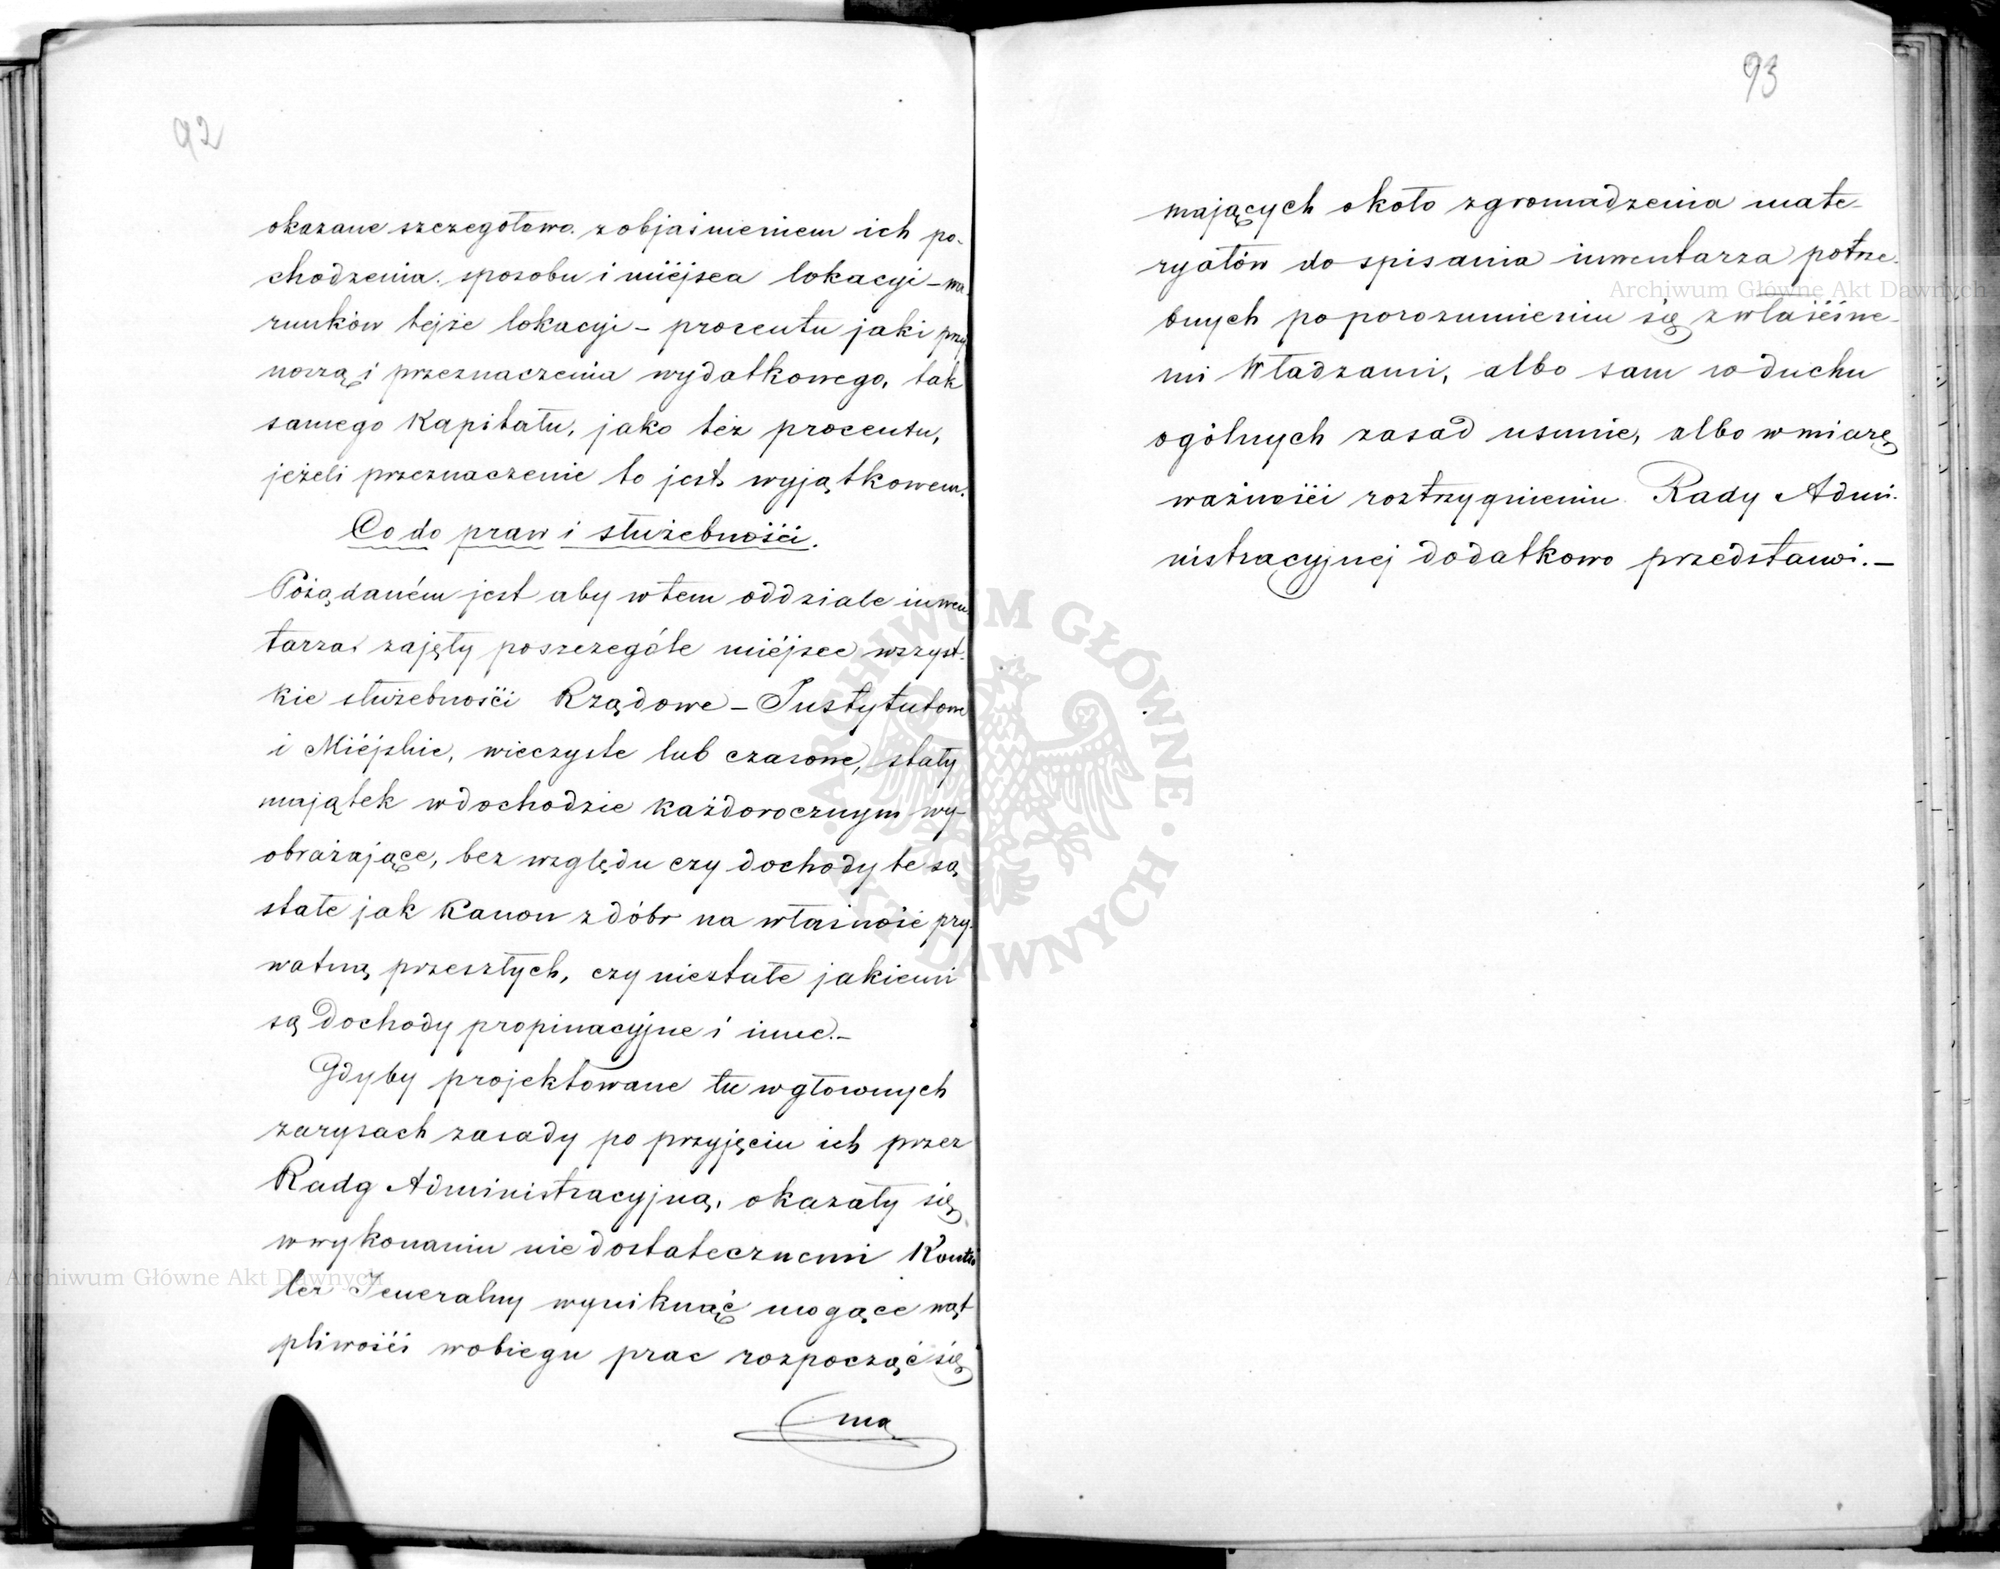 92
okazane szczegółowo z objaśnieniem ich po-
chodzenia. sposobu i miejsca lokacyi – wa-
runków tejże lokacyi – procentu jaki przy
noszą i przeznaczenia wydatkowego, tak
samego Kapitału, jako też procentu,
jeżeli przeznaczenie to jest wyjątkowem.
Co do praw i służebności.
Pożądaném jest aby w tem oddziale inwen-
tarza zajęły poszczególe miéjsce wszyst-
kie służebności Rządowe – Instytutowe
i Miéjskie, wieczyste lub czasowe, stały
majątek w dochodzie każdorocznym wy-
obrażające, bez względu czy dochody te są
stałe jak Kanon z dóbr na własność pry-
watną przeszłych, czy niestałe jakiemi
są dochody propinacyjne i inne.–
Gdyby projektowane tu w głównych
zarysach zasady po przyjęciu ich przez
Radę Administracyjną, okazały się
w wykonaniu niedostatecznemi Kontro
ler Jeneralny wyniknąć mogące wąt
pliwości w obiegu prac rozpocząć się
mą
93
mających około zgromadzenia mate-
ryałów do spisania inwentarza potrze-
bnych po porozumieniu się z właściwe-
mi Władzami, albo sam w duchu
ogólnych zasad usunie, albo w miarę
ważności roztrzygnieniu Rady Admi-
nistracyjnej dodatkowo przedstawi.–
Archiwum Główne Akt Dawnych
ARCHIWUM GŁÓWNE AKT DAWNYCH
Archiwum Główne Akt Dawnych